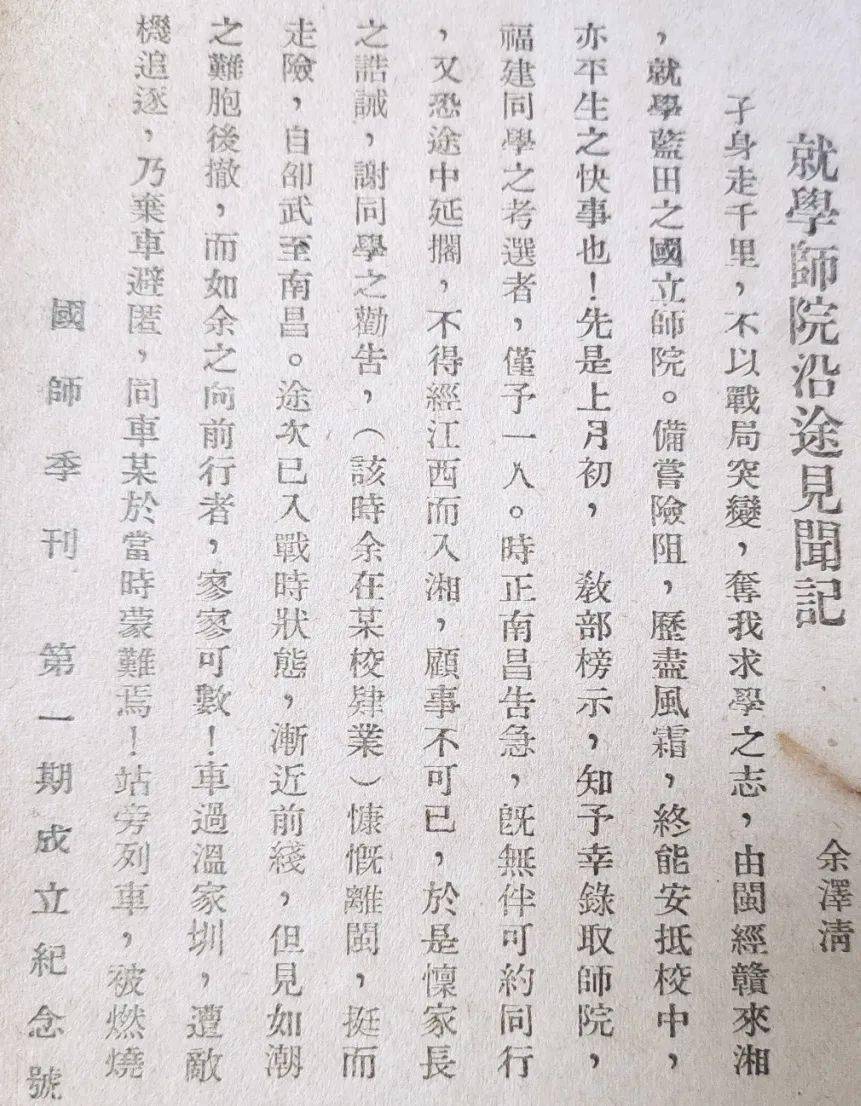 就學師院沿途見聞記
余澤淸
孑身走千里，不以戰局突變，奪我求學之志，由閩經贛來湘
，就學藍田之國立師院。備嘗險阻，歷盡風霜，終能安抵校中，
亦平生之快事也！先是上月初，　敎部榜示，知予幸錄取師院，
福建同學之考選者，僅予一人。時正南昌告急，旣無伴可約同行
，又恐途中延擱，不得經江西而入湘，顧事不可已，於是懍家長
之誥誡，謝同學之勸告，（該時余在某校肄業）慷慨離閩，挺而
走險，自邵武至南昌。途次已入戰時狀態，漸近前綫，但見如潮
之難胞後撤，而如余之向前行者，寥寥可數！車過溫家圳，遭敵
機追逐，乃棄車避匿，同車某於當時蒙難焉！站旁列車，被燃燒
國師季刊　第一期成立紀念號